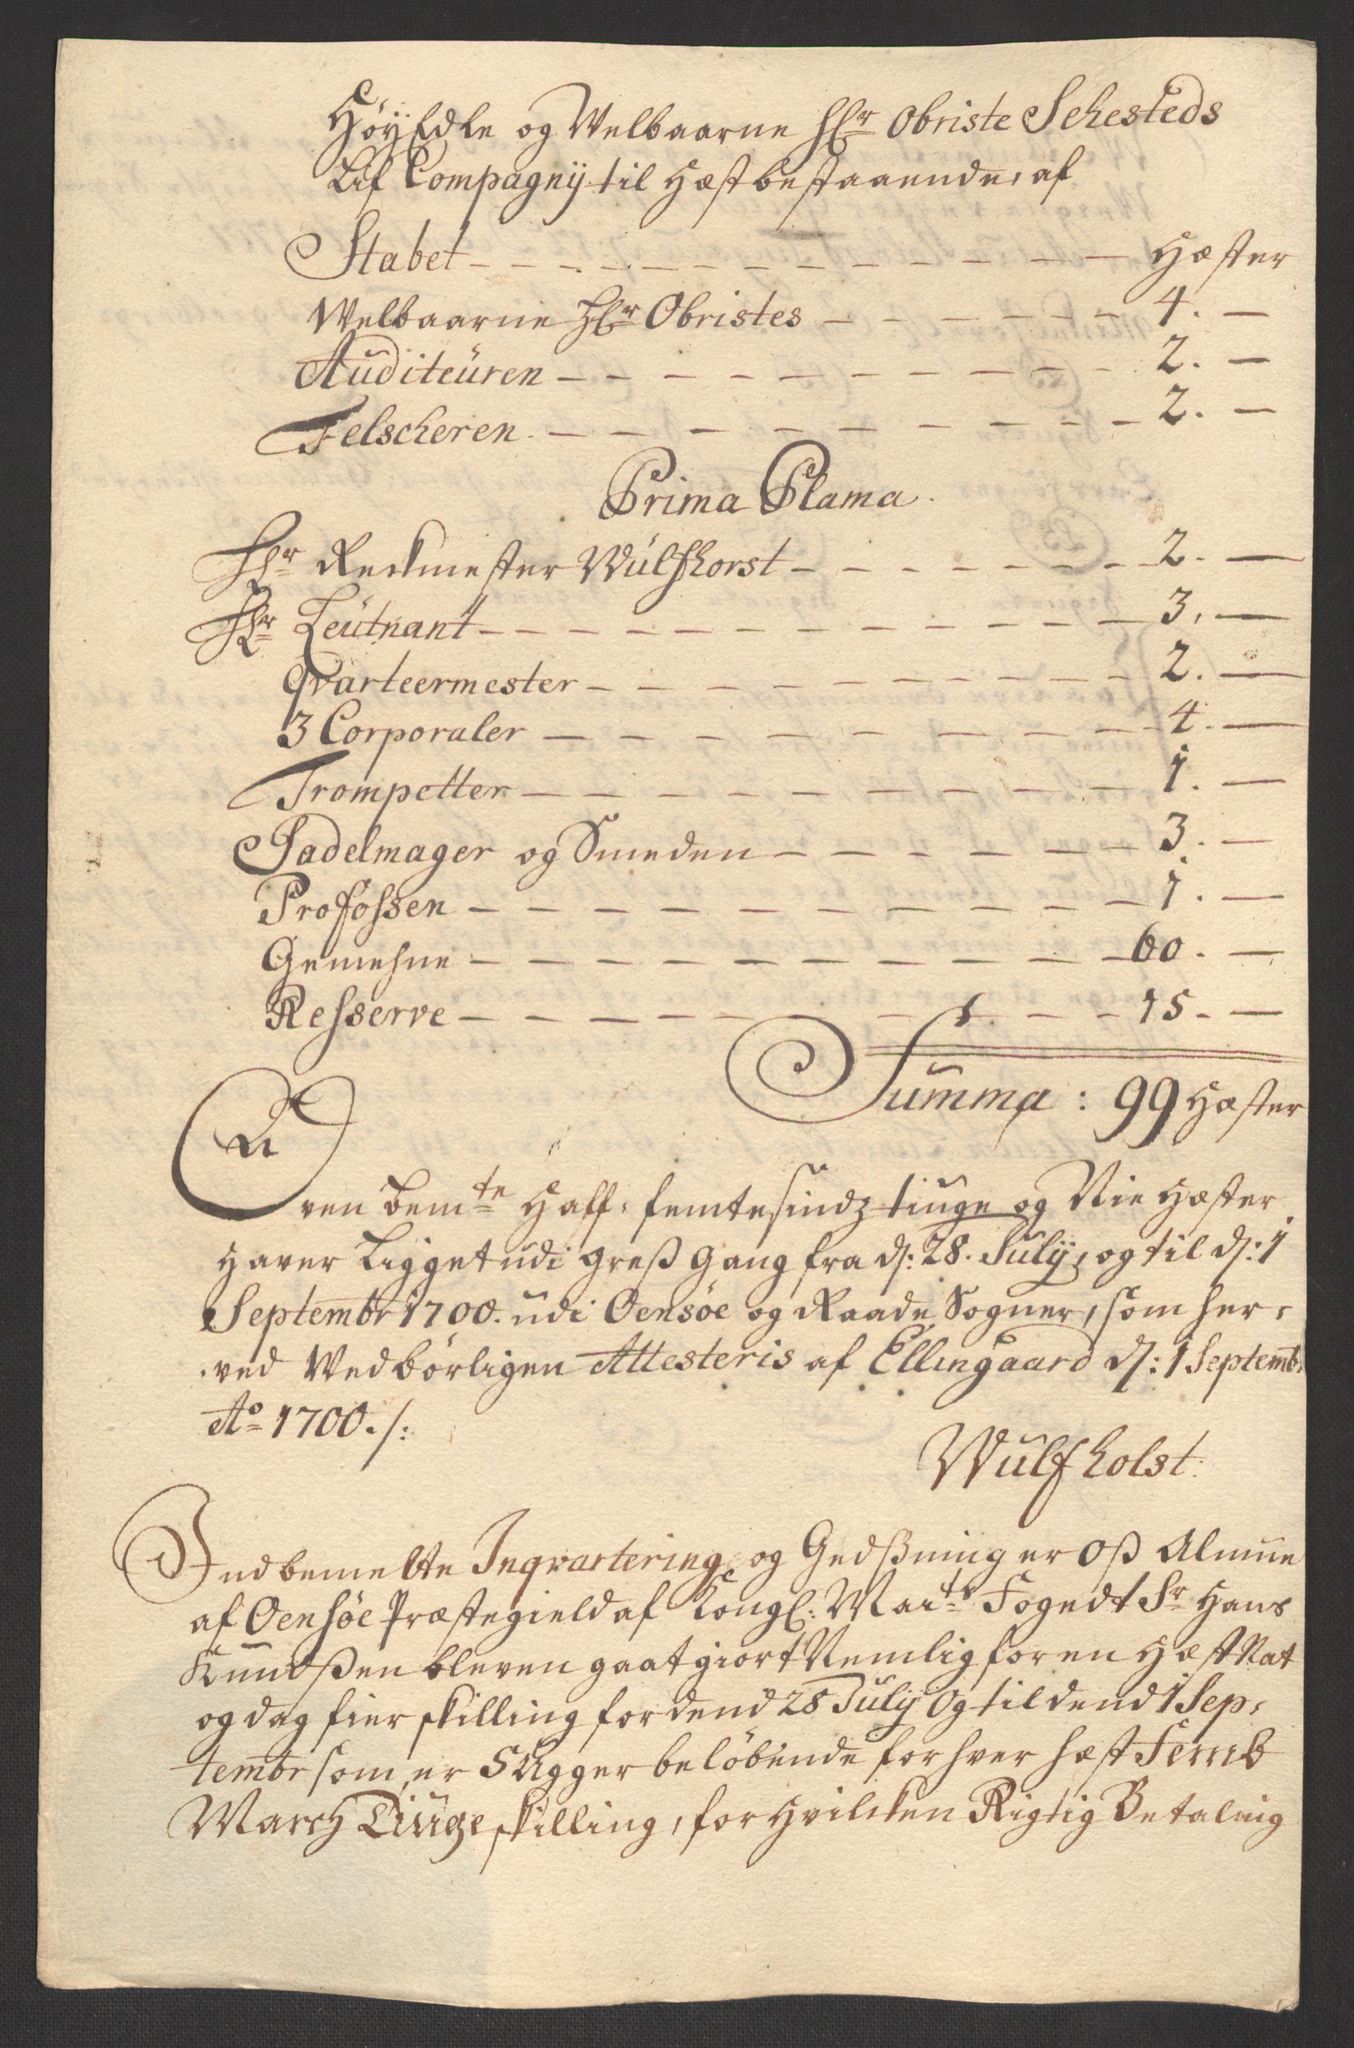 HöyEdle og Velbaarne Hr Obriste Sehesteds
Lif Compagnij til Hæst bestaaende, af
Stabet – Hæster
Velbaarne Hr Obristes – 4. –
Auditeüren – 2. –
Felscheren – 2. –
Prima Plama.
Hr Rectmester Wülfhorst – 2. –
Hr Leütnant – 3. –
Qvarteermester – 2. –
3 Corporaler – 4. –
Trompetter – 1. –
Sadelmager og Smeden – 3. –
Profossen – 1. –
Gemehne – 60. –
Resserve – 15. –
Summa : 99 Hæster
Oven bemte Half femtesindztiuge og Nie Hæster
Haver Ligget udi Greß Gang fra d: 28. July, og til d: 1
Septembr 1700. udi Oensøe og Raade Sogner, som her-
ved Vedbörligen Attesteris af Ellingaard d: 1 Septemb:
Ao 1700 ./:
Wülfholst:
Indbemelte Inqvartering og Gredßning er oß Almue
af Oensøe Præstegield af Kongl: Maits Fogedt Sr Hans
Knudßen bleven gaatgiort Nemlig for en Hæst Nat
og dag fier skilling for dend 28 July og til dend 1 Sep-
tembr som er 5 Ugger beløbende for hver hæst Femb
March Tiuge skilling, for Hvilcken Rigtig Betaling